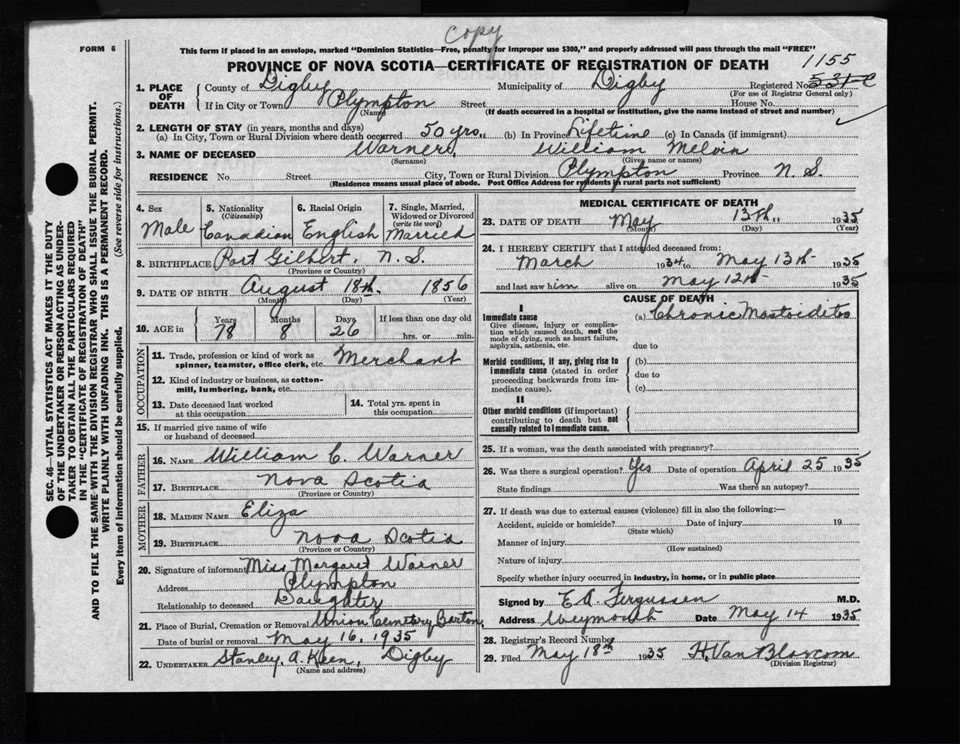 Copy
FORM 6
This form if placed in an envelope, marked "Dominion Statistics—Free, penalty for improper use $300," and properly addressed will pass through the mail "FREE"
PROVINCE OF NOVA SCOTIA—CERTIFICATE OF REGISTRATION OF DEATH
1155
1. PLACE OF DEATH
County of Digby Municipality of Digby Registered No. 531-C
(For use of Registrar General only)
If in City or Town Plympton Street House No.
(Name) (If death occurred in a hospital or institution, give the name instead of street and number)
2. LENGTH OF STAY (in years, months and days)
(a) In City, Town or Rural Division where death occurred 50 yrs. (b) In Province Lifetime (c) In Canada (if immigrant)
3. NAME OF DECEASED Warner, William Melvin
(Surname) (Given name or names)
RESIDENCE No. Street City, Town or Rural Division Plympton Province N. S.
(Residence means usual place of abode. Post Office Address for residents in rural parts not sufficient)
4. Sex Male
5. Nationality (Citizenship) Canadian
6. Racial Origin English
7. Single, Married, Widowed or Divorced (write the word) Married
8. BIRTHPLACE Port Gilbert, N. S.
(Province or Country)
9. DATE OF BIRTH August 18th. 1856
(Month) (Day) (Year)
10. AGE in Years 78 Months 8 Days 26 If less than one day old hrs. or min.
OCCUPATION
11. Trade, profession or kind of work as spinner, teamster, office clerk, etc. Merchant
12. Kind of industry or business, as cotton-mill, lumbering, bank, etc.
13. Date deceased last worked at this occupation
14. Total yrs. spent in this occupation
15. If married give name of wife or husband of deceased
FATHER
16. NAME William C. Warner
17. BIRTHPLACE Nova Scotia
(Province or Country)
MOTHER
18. MAIDEN NAME Eliza
19. BIRTHPLACE Nova Scotia
(Province or Country)
20. Signature of informant Miss Margaret Warner
Address Plympton
Relationship to deceased Daughter
21. Place of Burial, Cremation or Removal Union Cemetery Barton,
Date of burial or removal May 16, 1935
22. UNDERTAKER Stanley. A. Keen, Digby
(Name and address)
MEDICAL CERTIFICATE OF DEATH
23. DATE OF DEATH May 13th., 1935
(Month) (Day) (Year)
24. I HEREBY CERTIFY that I attended deceased from:
March 1934 to May 13th 1935
and last saw him alive on May 12th 1935
CAUSE OF DEATH
I
Immediate cause (a) Chronic Mastoiditos
Give disease, injury or complication which caused death, not the mode of dying, such as heart failure, asphyxia, asthenia, etc.
due to
Morbid conditions, if any, giving rise to immediate cause (stated in order proceeding backwards from immediate cause).
(b)
due to
(c)
II
Other morbid conditions (if important) contributing to death but not causally related to immediate cause.
25. If a woman, was the death associated with pregnancy?
26. Was there a surgical operation? Yes Date of operation April 25 1935
State findings Was there an autopsy?
27. If death was due to external causes (violence) fill in also the following:—
Accident, suicide or homicide? Date of injury 19
(State which)
Manner of injury
(How sustained)
Nature of injury
Specify whether injury occurred in industry, in home, or in public place
Signed by E.A. Fergussen M.D.
Address Weymouth Date May 14 1935
28. Registrar's Record Number
29. Filed May 18th 1935 H. Van Blarcom
(Division Registrar)
SEC. 46—VITAL STATISTICS ACT MAKES IT THE DUTY
OF THE UNDERTAKER OR PERSON ACTING AS UNDER-
TAKER TO OBTAIN ALL THE PARTICULARS REQUIRED
IN THE "CERTIFICATE OF REGISTRATION OF DEATH"
AND TO FILE THE SAME WITH THE DIVISION REGISTRAR WHO SHALL ISSUE THE BURIAL PERMIT.
WRITE PLAINLY WITH UNFADING INK. THIS IS A PERMANENT RECORD.
Every item of information should be carefully supplied. (See reverse side for instructions.)